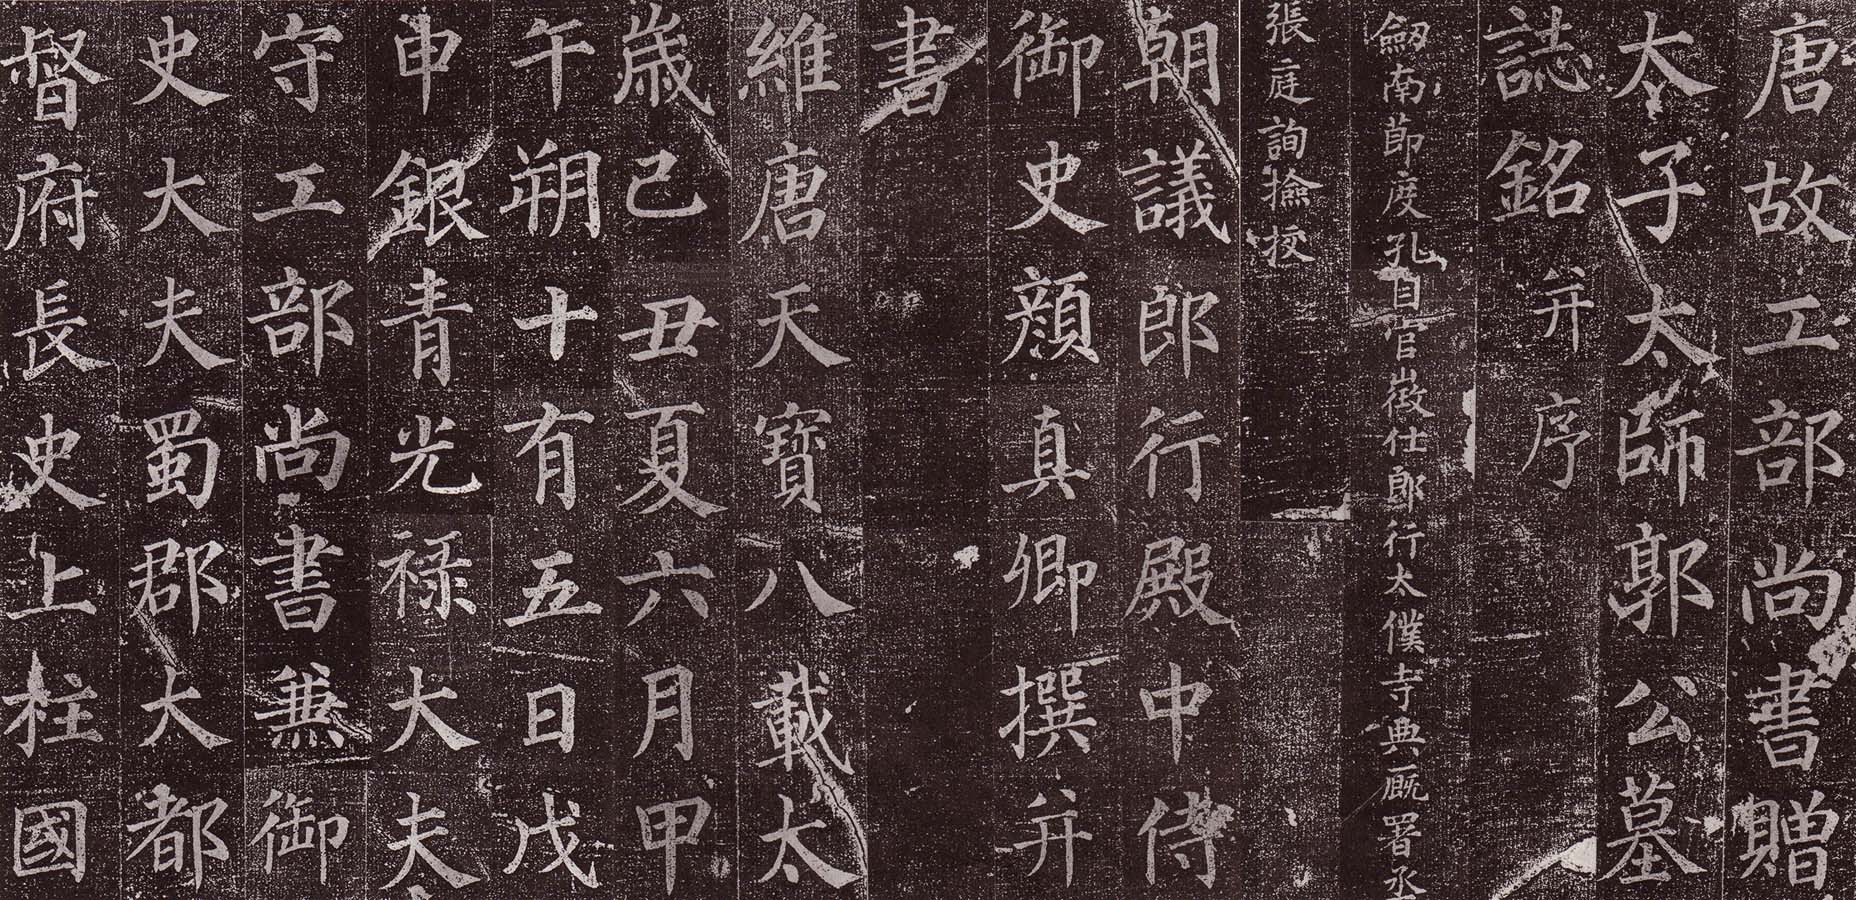 唐故工部尚書贈
太子太師郭公墓
誌銘并序
劒南莭度孔目官徵仕郎行太僕寺典廐署丞
張庭詢撿挍
朝議郎行殿中侍
御史顔真卿撰并
書
維唐天寶八載太
歳己丑夏六月甲
午朔十有五日戊
申銀青光禄大夫
守工部尚書兼御
史大夫蜀郡大都
督府長史上柱國